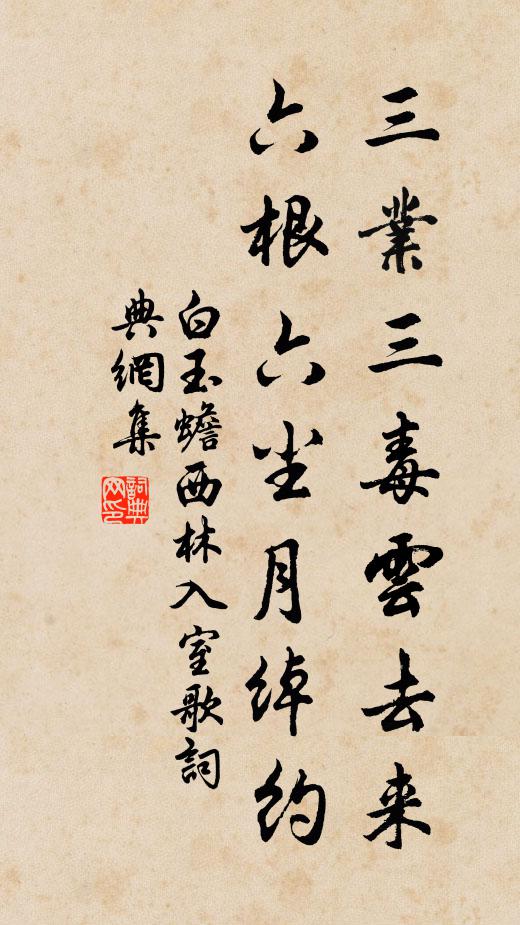 三業三毒雲去来
六根六尘月绰约
白玉蟾西林入室歌詞
典網集
詞典网印